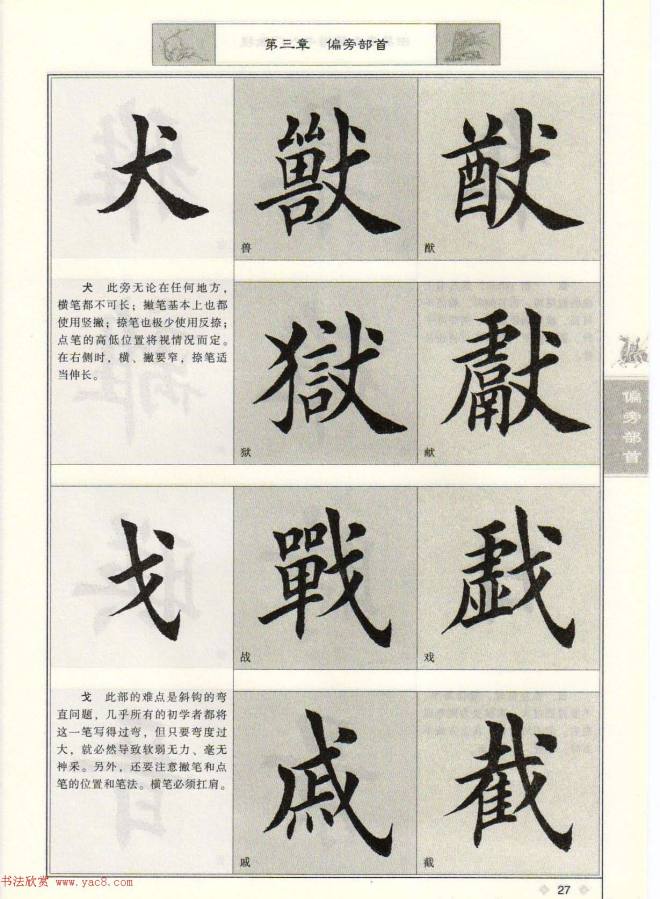 第三章 偏旁部首
犬 獸 猷
兽 猷
犬 此旁无论在任何地方，
横笔都不可长；撇笔基本上也都
使用竖撇；捺笔也极少使用反捺；
点笔的高低位置将视情况而定。
在右侧时，横、撇要窄，捺笔适
当伸长。
獄 獻
狱 献
偏旁部首
戈 戰 戲
战 戏
戈 此部的难点是斜钩的弯
直问题，几乎所有的初学者都将
这一笔写得过弯，但只要弯度过
大，就必然导致软弱无力、毫无
神采。另外，还要注意撇笔和点
笔的位置和笔法。横笔必须扛肩。
戚 截
戚 截
书法欣赏 www.yac8.com
27